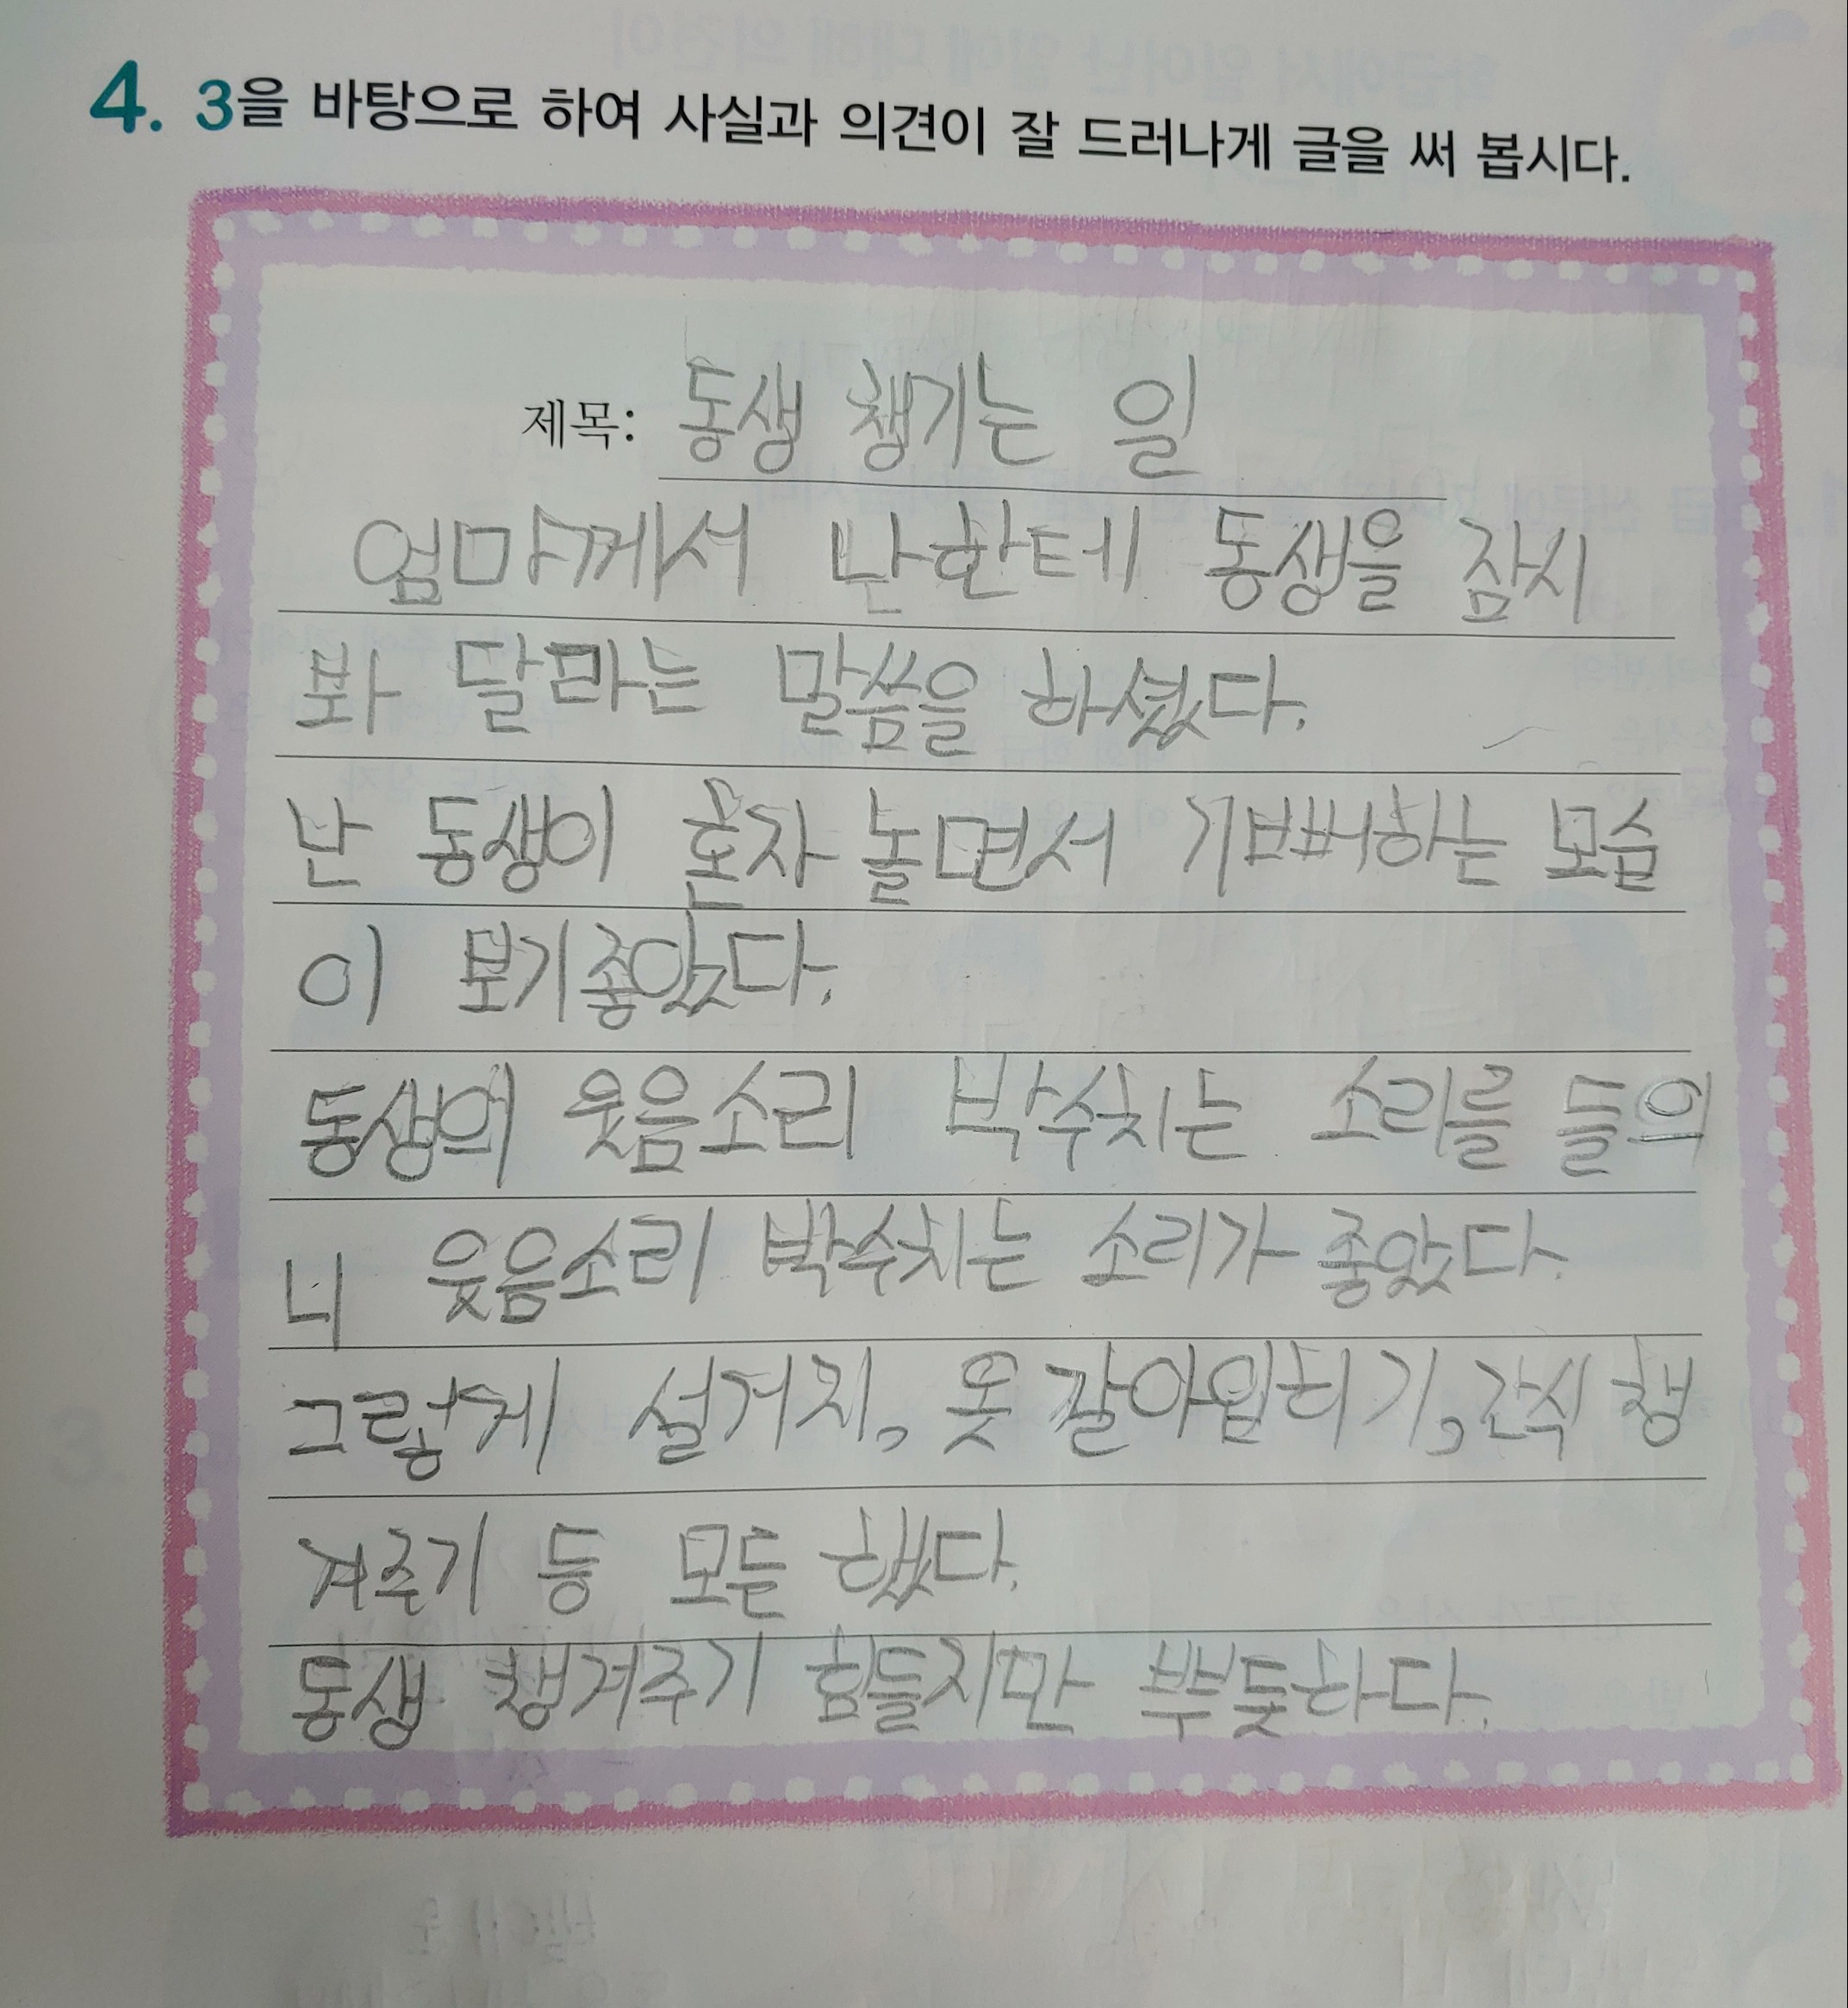 4. 3을 바탕으로 하여 사실과 의견이 잘 드러나게 글을 써 봅시다.
제목: 동생 챙기는 일
엄마께서 난한테 동생을 잠시
봐 달라는 말씀을 하셨다.
난 동생이 혼자 놀면서 기뻐하는 모습
이 보기좋았다.
동생의 웃음소리 박수치는 소리를 들의
니 웃음소리 박수치는 소리가 좋았다.
그렇게 설거지, 옷 갈아입히기, 간식 챙
겨주기 등 모든 했다.
동생 챙겨주기 힘들지만 뿌듯하다.